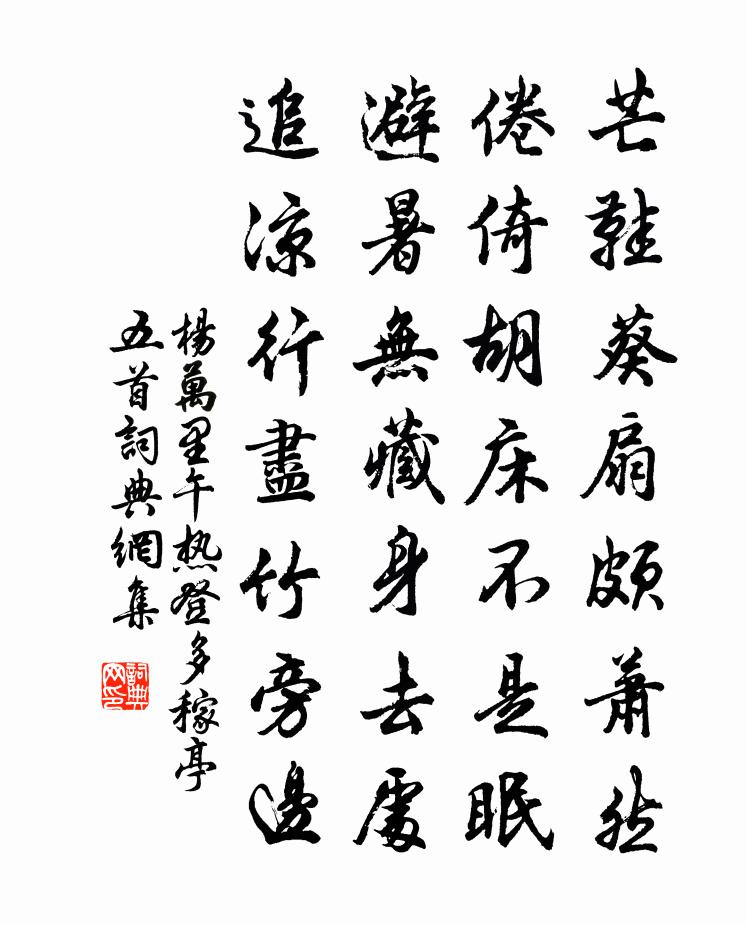 芒鞋葵扇頗蕭然
倦倚胡床不是眠
避暑無藏身去處
追涼行盡竹旁邊
楊萬里午热登多稼亭
五首詞典網集
詞典网印